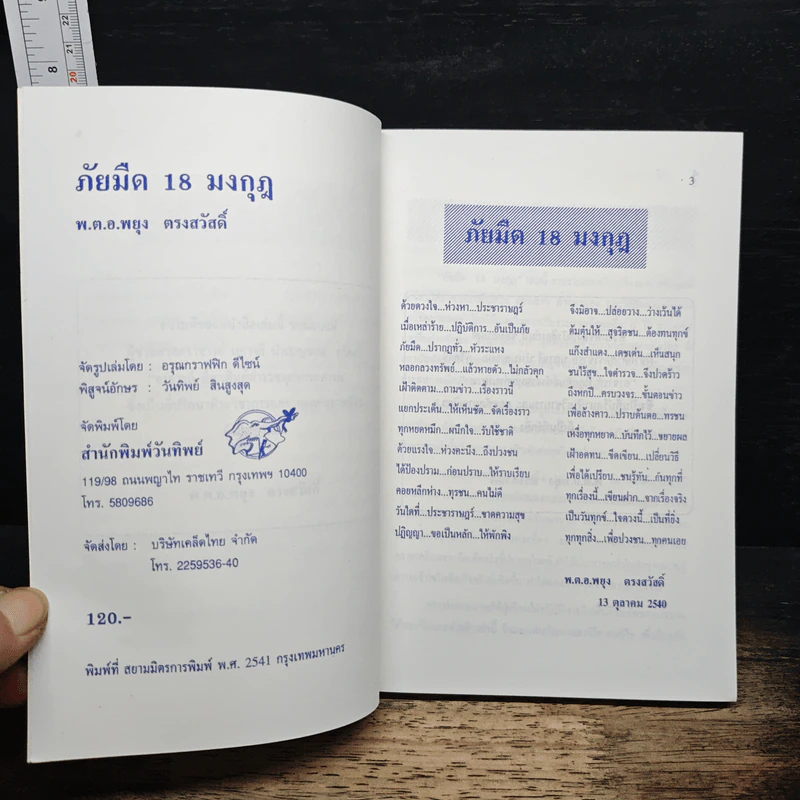 9
22
21
8
20
ภัยมืด 18 มงกุฎ
พ.ต.อ.พยุง ตรงสวัสดิ์
จัดรูปเล่มโดย : อรุณกราฟฟิก ดีไซน์
พิสูจน์อักษร : วันทิพย์ สินสูงสุด
จัดพิมพ์โดย
สำนักพิมพ์วันทิพย์
119/98 ถนนพญาไท ราชเทวี กรุงเทพฯ 10400
โทร. 5809686
จัดส่งโดย : บริษัทเคล็ดไทย จำกัด
โทร. 2259536-40
120.-
พิมพ์ที่ สยามมิตรการพิมพ์ พ.ศ. 2541 กรุงเทพมหานคร
3
ภัยมืด 18 มงกุฎ
ด้วยดวงใจ...ห่วงหา...ประชาราษฎร์ จึงมิอาจ...ปล่อยวาง...ว่างเว้นได้
เมื่อเหล่าร้าย...ปฏิบัติการ...อันเป็นภัย ต้มตุ๋นให้...สุจริตชน...ต้องทนทุกข์
ภัยมืด...ปรากฏทั่ว...หัวระแหง แก๊งสำแดง...เดชเด่น...เห็นสนุก
หลอกลวงทรัพย์...แล้วหายตัว...ไม่กลัวคุก ชนไร้สุข...ใจตำรวจ...จึงปวดร้าว
เฝ้าติดตาม...ถามข่าว...เรื่องราวนี้ ถึงหกปี...ครบวงจร...ขั้นตอนข่าว
แยกประเด็น...ให้เห็นชัด...จัดเรื่องราว เพื่อล้างคาว...ปราบต้นตอ...ทรชน
ทุกหยดหมึก...ผนึกใจ...รับใช้ชาติ เหงื่อทุกหยาด...บันทึกไว้...ขยายผล
ด้วยแรงใจ...ห่วงคะนึง...ถึงปวงชน เฝ้าอดทน...ขีดเขียน...เปลี่ยนวิธี
ได้ป้องปราม...ก่อนปราบ...ให้ราบเรียบ เพื่อได้เปรียบ...ชนรู้ทัน...กันทุกที่
คอยหลีกห่าง...ทุรชน...คนไม่ดี ทุกเรื่องนี้...เขียนฝาก...จากเรื่องจริง
วันใดที่...ประชาราษฎร์...ขาดความสุข เป็นวันทุกข์...ใจดวงนี้...เป็นที่ยิ่ง
ปฏิญญา...ขอเป็นหลัก...ให้พักพิง ทุกทุกสิ่ง...เพื่อปวงชน...ทุกคนเอย
พ.ต.อ.พยุง ตรงสวัสดิ์
13 ตุลาคม 2540